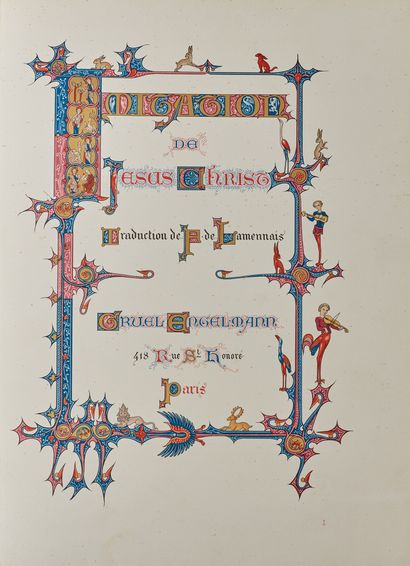 IMITATION
DE
JESUS CHRIST
Traduction de F. de Lamennais
GRUEL ENGELMANN
418 Rue St. Honoré
Paris